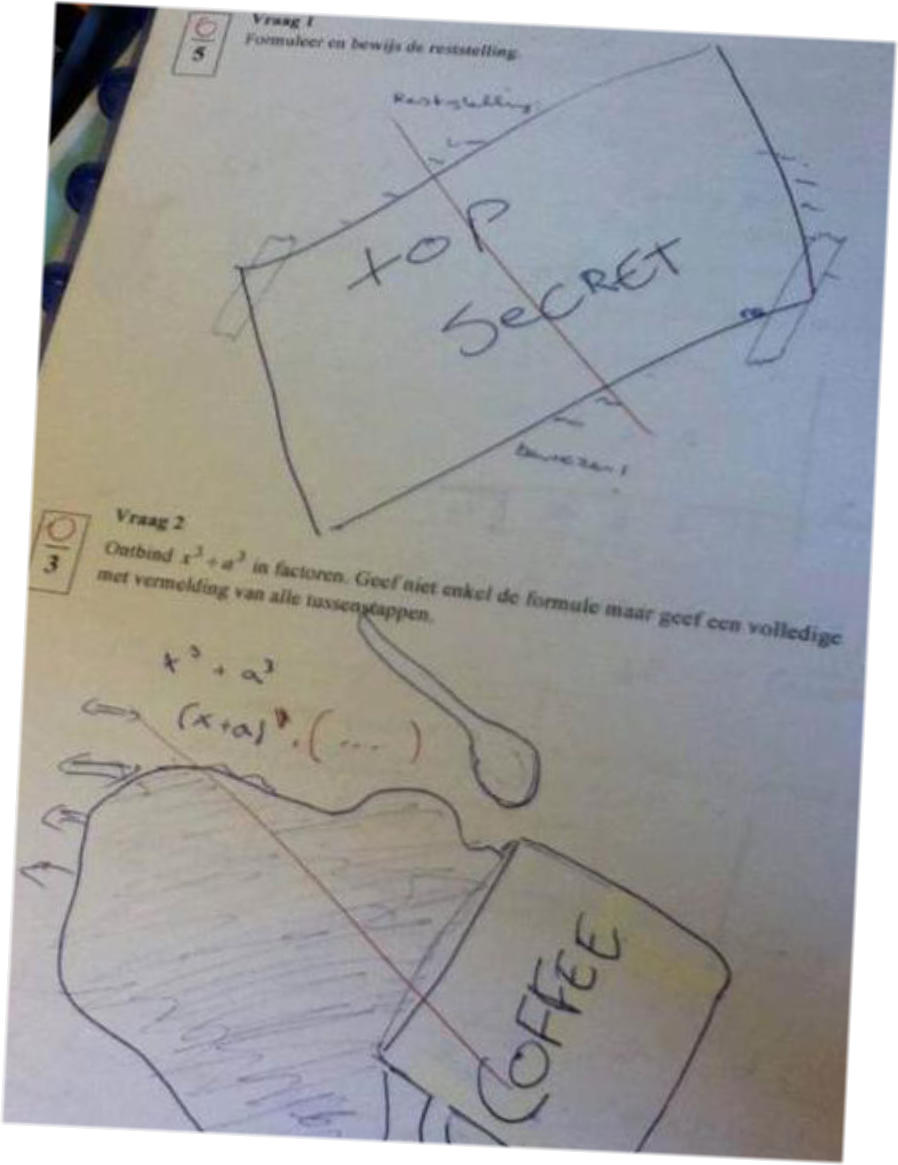 0
5
Vraag 1
Formuleer en bewijs de reststelling.
Reststelling:
TOP
SeCRET
Bewezen!
0
3
Vraag 2
Ontbind x³+a³ in factoren. Geef niet enkel de formule maar geef een volledige
met vermelding van alle tussenstappen.
x³ + a³
(x+a) . ( ... )
COFFEE